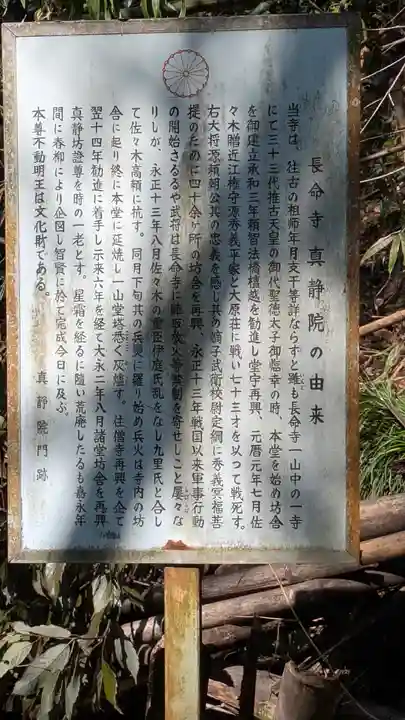 長命寺 真静院の由来
当寺は、往古の祖師年月支干等詳ならずと雖も長命寺一山中の一寺
にて三十三代推古天皇の御代聖徳太子御臨幸の時、本堂を始め坊舎
を御建立承和三年頼智法橋檀越を勧進し堂宇再興、元暦元年七月佐
々木贈近江権守源秀義平家と大原荘に戦い七十三才を以つて戦死す。
右大将源頼朝公其の忠義を感じ其の嫡子武衛校尉定綱に秀義冥福菩
提のために四十余ヶ所の坊舎を再興、永正十三年戦国以来軍事行動
の開始さるるや武将は長命寺に
制を寄せしこと屡々な
りしが、永正十三年八月佐々木の重臣伊庭氏乱をなし九里氏と合し
て佐々木高頼に抗す。同月下旬其の兵火に羅り始め兵火は寺内の坊
舎に起り終に本堂に延焼し一山堂塔悉く灰燼す。住僧寺再興を企て
翌十四年勧進に着手し示来六年を経て大永二年八月諸堂坊舎を再興
真静坊證尊を時の一老とす。星霜を経るに随い荒廃したるも嘉永年
間に春柳により企図し智賢に於て完成今日に及ぶ。
本尊不動明王は文化財である。
真静院門跡